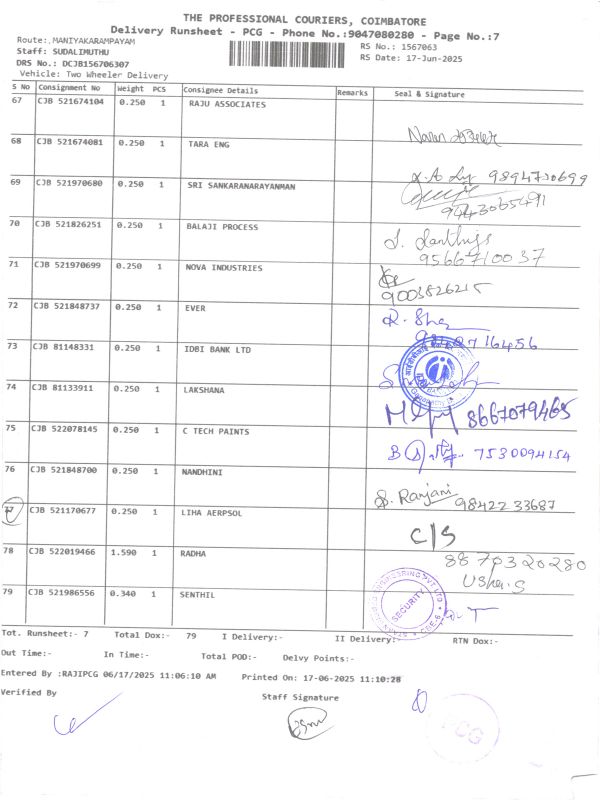 THE PROFESSIONAL COURIERS, COIMBATORE
Delivery Runsheet - PCG - Phone No.:9047080280 - Page No.:7
Route:.MANIYAKARAMPAYAM
RS No.: 1567063
Staff: SUDALIMUTHU
RS Date: 17-Jun-2025
DRS No.: DCJB156706307
Vehicle: Two Wheeler Delivery
S No Consignment No Weight PCS Consignee Details Remarks Seal & Signature
67 CJB 521674104 0.250 1 RAJU ASSOCIATES
68 CJB 521674081 0.250 1 TARA ENG 9894730699
69 CJB 521970680 0.250 1 SRI SANKARANARAYANMAN 9443065491
70 CJB 521826251 0.250 1 BALAJI PROCESS
9566710037
71 CJB 521970699 0.250 1 NOVA INDUSTRIES
9003826215
72 CJB 521848737 0.250 1 EVER
73 CJB 81148331 0.250 1 IDBI BANK LTD
74 CJB 81133911 0.250 1 LAKSHANA 8667079465
75 CJB 522078145 0.250 1 C TECH PAINTS 7530094154
76 CJB 521848700 0.250 1 NANDHINI
S. Ranjani 9842233687
77 CJB 521170677 0.250 1 LIHA AERPSOL C/S
78 CJB 522019466 1.590 1 RADHA 8870320280
Usha.S
79 CJB 521986556 0.340 1 SENTHIL
SECURITY
Tot. Runsheet:- 7 Total Dox:- 79 I Delivery:- II Delivery:- RTN Dox:-
Out Time:- In Time:- Total POD:- Delvy Points:-
Entered By :RAJIPCG 06/17/2025 11:06:10 AM Printed On: 17-06-2025 11:10:28
Verified By Staff Signature
PCG